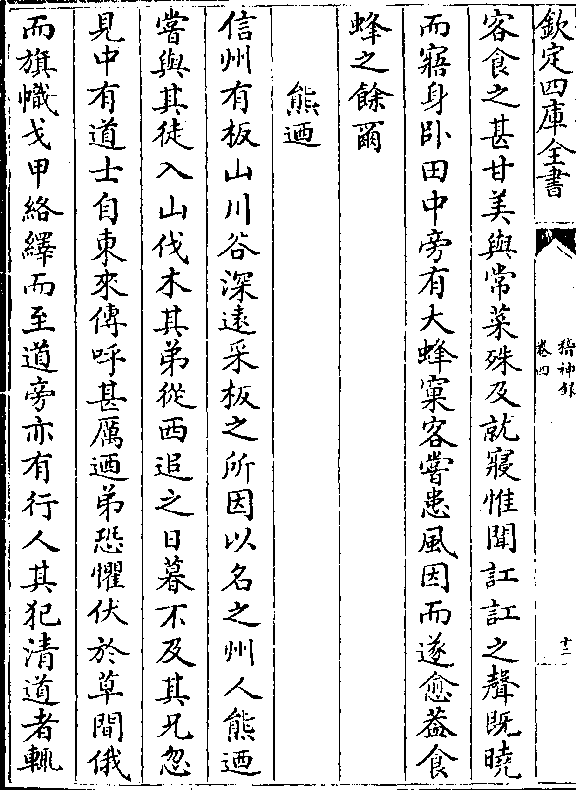 欽定四庫全書
稽神錄
卷四
十二
客食之甚甘美與常菜殊及就寢惟聞訌訌之聲既曉
而寤身卧田中旁有大蜂窠客嘗患風因而遂愈葢食
蜂之餘爾
熊迺
信州有板山川谷深逺采板之所因以名之州人熊迺
嘗與其徒入山伐木其弟從西追之日暮不及其兄忽
見中有道士自東來傳呼甚厲迺弟恐懼伏於草間俄
而旗幟戈甲絡繹而至道旁亦有行人其犯清道者輒